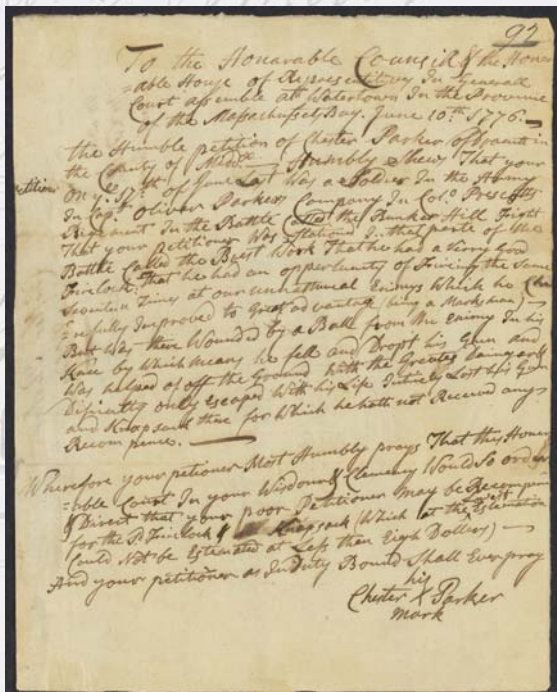 92
To the Honarable Councel & the Honor
=able House of Representitivs In Generall
Court assemble att Watertown In the Provinc
of the Massachusets Bay. June 10th 1776.
the Humble petition of Chester Parker of Dracutt in
the County of Midd.x Humbly Shews That your
Petitioner
On ye 17th of June Last Was a Soldier In the Army
In Capt Oliver Parkers Company In Colo Prescotts
Rigement In the Battle Called the Bunker Hill Fight
That your petitioner Was Stationd In that parte of the
Battle Called the Brest Work That he had a Verry Good
Firelock. That he had an opportunety of Fireing the Same
Seventeen Times at our unnatturial Enimys Which he Che
=refully Improved to Great advantag (being a Marksman)
But Was there Wounded by a Ball from the Enimy In his
Knee by Which Means he fell and Dropt his Gun and
Was helped of off the Ground With the Greates Dainger &
Dificulty only escaped With his Life Intirely Lost his Gun
and Knapsack there for Which he hath not Received any
Recompence.
Wherefore your petioner Most Humbly prays That this Honor
=able Court In your Wisdom & Clemency Would So order
& Direct that your poor Petitioner May be Recompenc
for the Sd Firelock & Knapsack (Which at the Lowest Estemation
Could Not be Estemated at Less than Eigh Dollers)
And your petitioner as In Duty Bound Shall Ever pray
his
Chester X Parker
mark